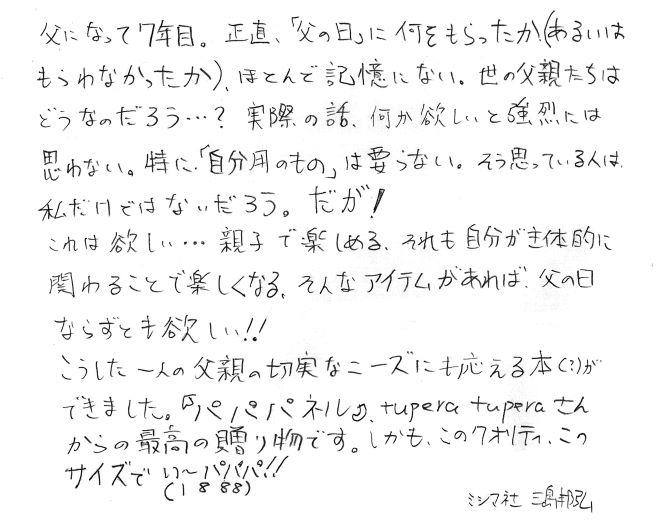 父になって7年目。正直、「父の日」に何をもらったか(あるいは
もらわなかったか)、ほとんど記憶にない。世の父親たちは
どうなのだろう…? 実際の話、何か欲しいと強烈には
思わない。特に、「自分用のもの」は要らない。そう思っている人は、
私だけではないだろう。だが!
これは欲しい… 親子で楽しめる、それも自分が主体的に
関わることで楽しくなる、そんなアイテムがあれば、父の日
ならずとも欲しい!!
こうした一人の父親の切実なニーズにも応える本(?)が
できました。『パパパネル』、tupera tuperaさん
からの最高の贈り物です。しかも、このクオリティ、この
サイズで い〜パパパ!!
(1 8 88)
ミシマ社 三島邦弘